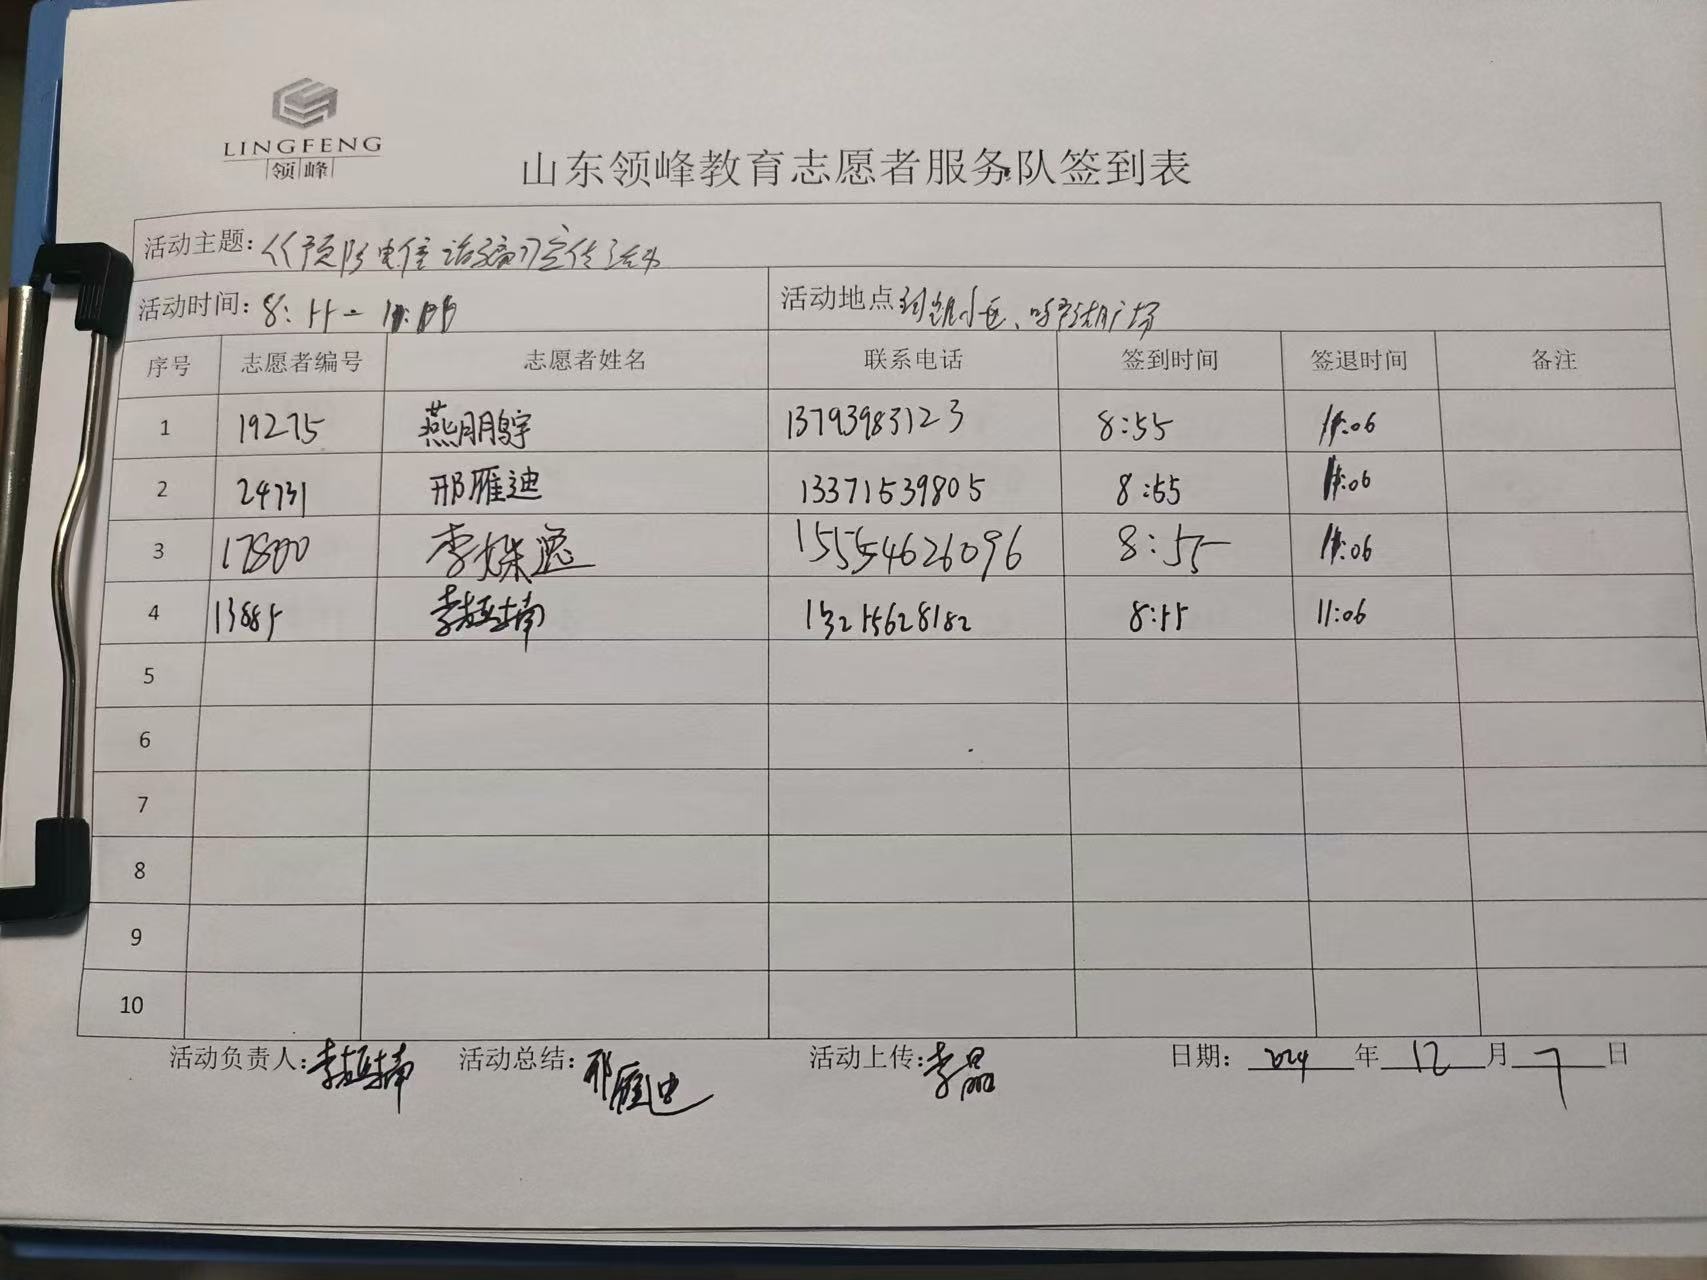 LINGFENG
领峰
山东领峰教育志愿者服务队签到表
活动主题：《预防电信诈骗》宣传活动
活动时间：8:55-11:06
活动地点 小区、广场
序号 志愿者编号 志愿者姓名 联系电话 签到时间 签退时间 备注
1 19275 燕朋宇 13793983123 8:55 11:06
2 24731 邢雁迪 13371539805 8:55 11:06
3 17800 李姝逸 15554626096 8:55 11:06
4 13885 李 楠 13215628182 8:55 11:06
5
6
7
8
9
10
活动负责人： 活动总结：邢雁迪 活动上传：李晶 日期：2024年12月7日